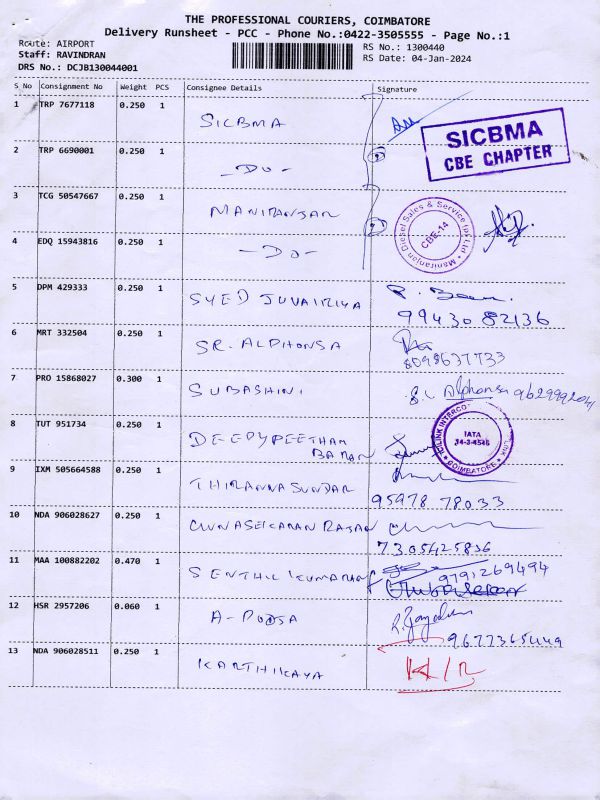 THE PROFESSIONAL COURIERS, COIMBATORE
Delivery Runsheet - PCC - Phone No.:0422-3505555 - Page No.:1
Route: AIRPORT
RS No.: 1300440
Staff: RAVINDRAN
RS Date: 04-Jan-2024
DRS No.: DCJB130044001
S No Consignment No Weight PCS Consignee Details Signature
1 TRP 7677118 0.250 1 SICBMA
SICBMA
CBE CHAPTER
2 TRP 6690001 0.250 1 -DO-
3 TCG 50547667 0.250 1 MANIRANJAN
Maniranjan Diesel Sales & Service (p) Ltd
CBE-14
4 EDQ 15943816 0.250 1 -DO-
5 DPM 429333 0.250 1 SYED JUVAIRIYA
9943082136
6 MRT 332504 0.250 1 SR. ALPHONSA
8098637733
7 PRO 15868027 0.300 1 SUBASHINI
Alphonsa
8 TUT 951734 0.250 1 DEEPYPEETHAM
IATA
COIMBATORE
9 IXM 505664588 0.250 1 THIRANNASUNDAR
95978 78033
10 NDA 906028627 0.250 1 GUNASEKARAN RAJAN
7305425836
11 MAA 100882202 0.470 1 SENTHIL KUMARAN
9791269494
12 HSR 2957206 0.060 1 A-POOJA
9677365449
13 NDA 906028511 0.250 1 KARTHIKAYA